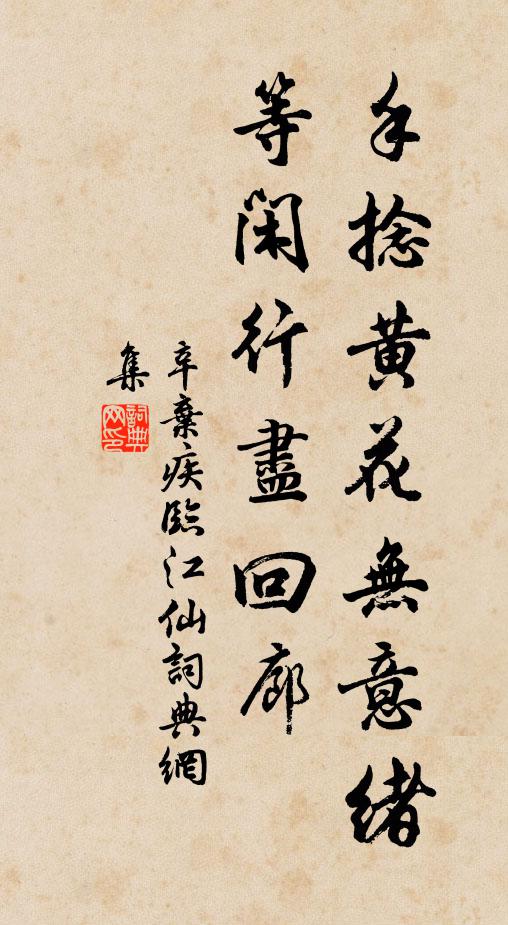 手捻黄花無意緒
等閑行盡回廊
辛棄疾臨江仙詞典網
集
詞典网印